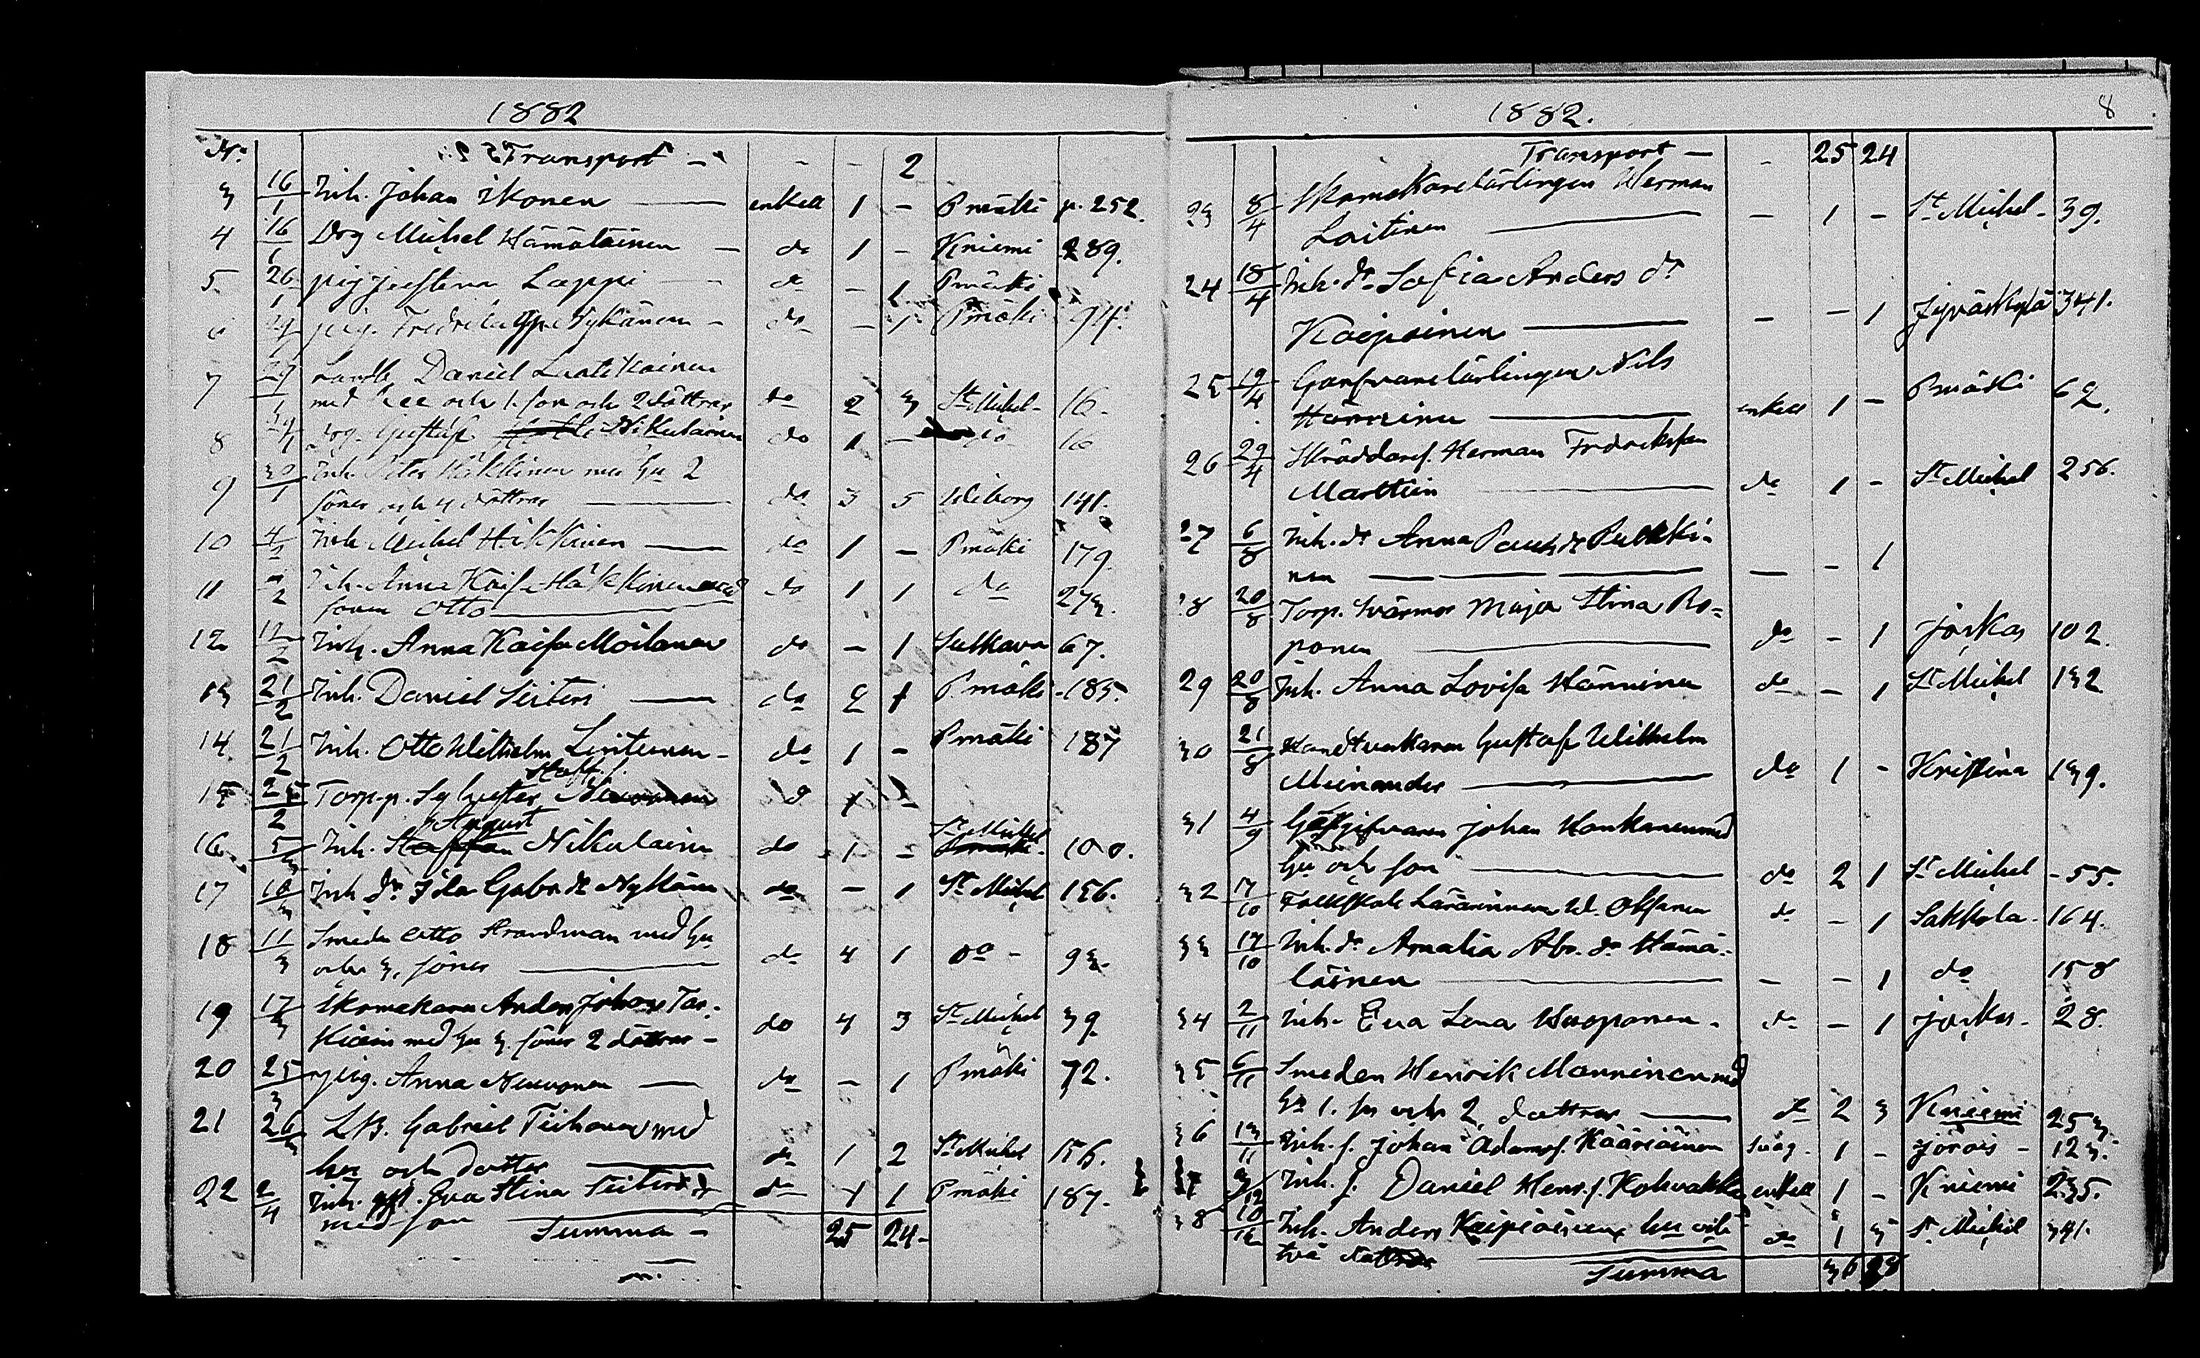 1882
No. Transport — - - 2
3 16/1 Inh. Johan Ikonen — enkell 1 - Pmäki p. 252.
4 16/1 Drg Michel Hämäläinen — do 1 - Kniemi 289.
5. 26/1 pig Justina Lappi — do - 1 Pmäki
6 pig. Fredrika Nykänen - do - 1 Pmäki 94.
7 Landb. Daniel Luukkainen
med hu och 1. son och 2 döttrar do 2 3 St Michel - 16.
8 drg. Gustaf Nikulainen do 1 - 10
9 30/1 Inh. Peter Häkkinen med hu 2
söner och 4 döttrar — do 3 5 Wiborg 141.
10 4/2 Inh Michel Häkkinen — do 1 - Pmäki 179.
11 Inh. Anna Kaisa Häkkinen med
sonen Otto — do 1 1 do 273.
12 12/2 Inh. Anna Kaisa Moilanen do - 1 Sulkava 67.
13 21/2 Inh. Daniel Teittinen — do 2 1 Pmäki - 185.
14. 21/2 Inh. Otto Wilhelm Lintunen - do 1 - Pmäki 187
Staff.
15 25/2 Torp.p. Sylvester Nuuonen d 1 -
August St Michel
16. 5/3 Inh. Staffan Nikulainen do 1 - Pmäki. 100.
17 10/3 Inh dr Ida Gabr. dr Nykänen do - 1 St Michel 156.
18 11/3 Smeden Otto Strandman med hu
och 3. söner — do 4 1 do - 93.
19 17/3 Skomakaren Anders Johan Tas-
kinen med hu 3. söner 2 döttrar - do 4 3 St Michel 39
20 25/3 pig. Anna Nuuonen — do - 1 Pmäki 72.
21 26/3 L.B. Gabriel Tiihonen med
hu och dotter — do 1 2 St Michel 156.
22 2/4 Inh. Eva Stina Teittinen do 1 1 Pmäki 187.
med son Summa - 25 24 -
1882. 8
Transport — - 25 24
23 8/4 Skomakarelärlingen Herman
Laitinen — - 1 - St Michel - 39.
24 18/4 Inh. dr. Sofia Anders dr
Kaipainen — - - 1 Jyväskylä 341.
25 19/4 Garfvarelärlingen Nils
Hänninen — enkell 1 - Pmäki 62.
26 29/4 Skräddaref. Herman Fredriksson
Marttiin — do 1 - St Michel 256.
27 6/8 Inh. dr Anna Pauls dr Pulkki-
nen — — — — - 1
28 20/8 Torp. Svärmor Maja Stina Ro-
ponen — do - 1 Jorkas 102.
29 20/8 Inh. Anna Lovisa Hänninen do - 1 St Michel 132
30 21/8 Handtverkaren Gustaf Wilhelm
Meinander — do 1 - Kristina 139.
31 4/9 Gästgifvaren Johan Honkanen med
hu och son — do 2 1 St Michel - 55.
32 17/10 Folkskole Lärarinnan W. Oksanen do - 1 Sakkola - 164.
33 17/10 Inh. dr Amalia Abr. dr Hämä-
läinen — - - 1 do 158
34 2/11 Inh. Eva Lena Huoponen - do - 1 Jorkas - 28.
35 6/11 Smeden Henrik Manninen med
hu 1. son och 2, döttrar — do 2 3 Kniemi 253.
36 13/11 Inh. s. Johan Adamss. Kääriäinen 1 - Jorois - 123.
37 9/12 Inh. s. Daniel Henr. s. Kohvakka enkell 1 - Kniemi 235.
38 10/12 Inh. Anders Kaipiainen hu och do 1 3 St Michel 341.
två döttrar — Summa 36